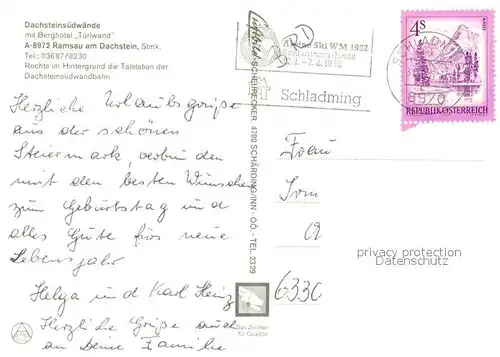 Dachsteinsüdwände
mit Berghotel „Türlwand"
A-8972 Ramsau am Dachstein, Stmk.
Tel.: 03687/8230
Rechts im Hintergrund die Talstation der
Dachsteinsüdwandbahn
Herzliche Urlaubsgrüße
aus der schönen
Steiermark, verbunden
mit den besten Wünschen
zum Geburtstag und
alles Gute fürs neue
Lebensjahr
Helga und Karl Heinz
Herzliche Grüße auch
an Deine Familie
SCHREINECKER 4780 SCHÄRDING/INN - OÖ. - TEL. 2329
Alpine Ski WM 1982
Schladming
4 S
REPUBLIK ÖSTERREICH
SCHLADMING
8970
Frau
Irm
6330
privacy protection
Datenschutz
Das Zeichen
für Qualität